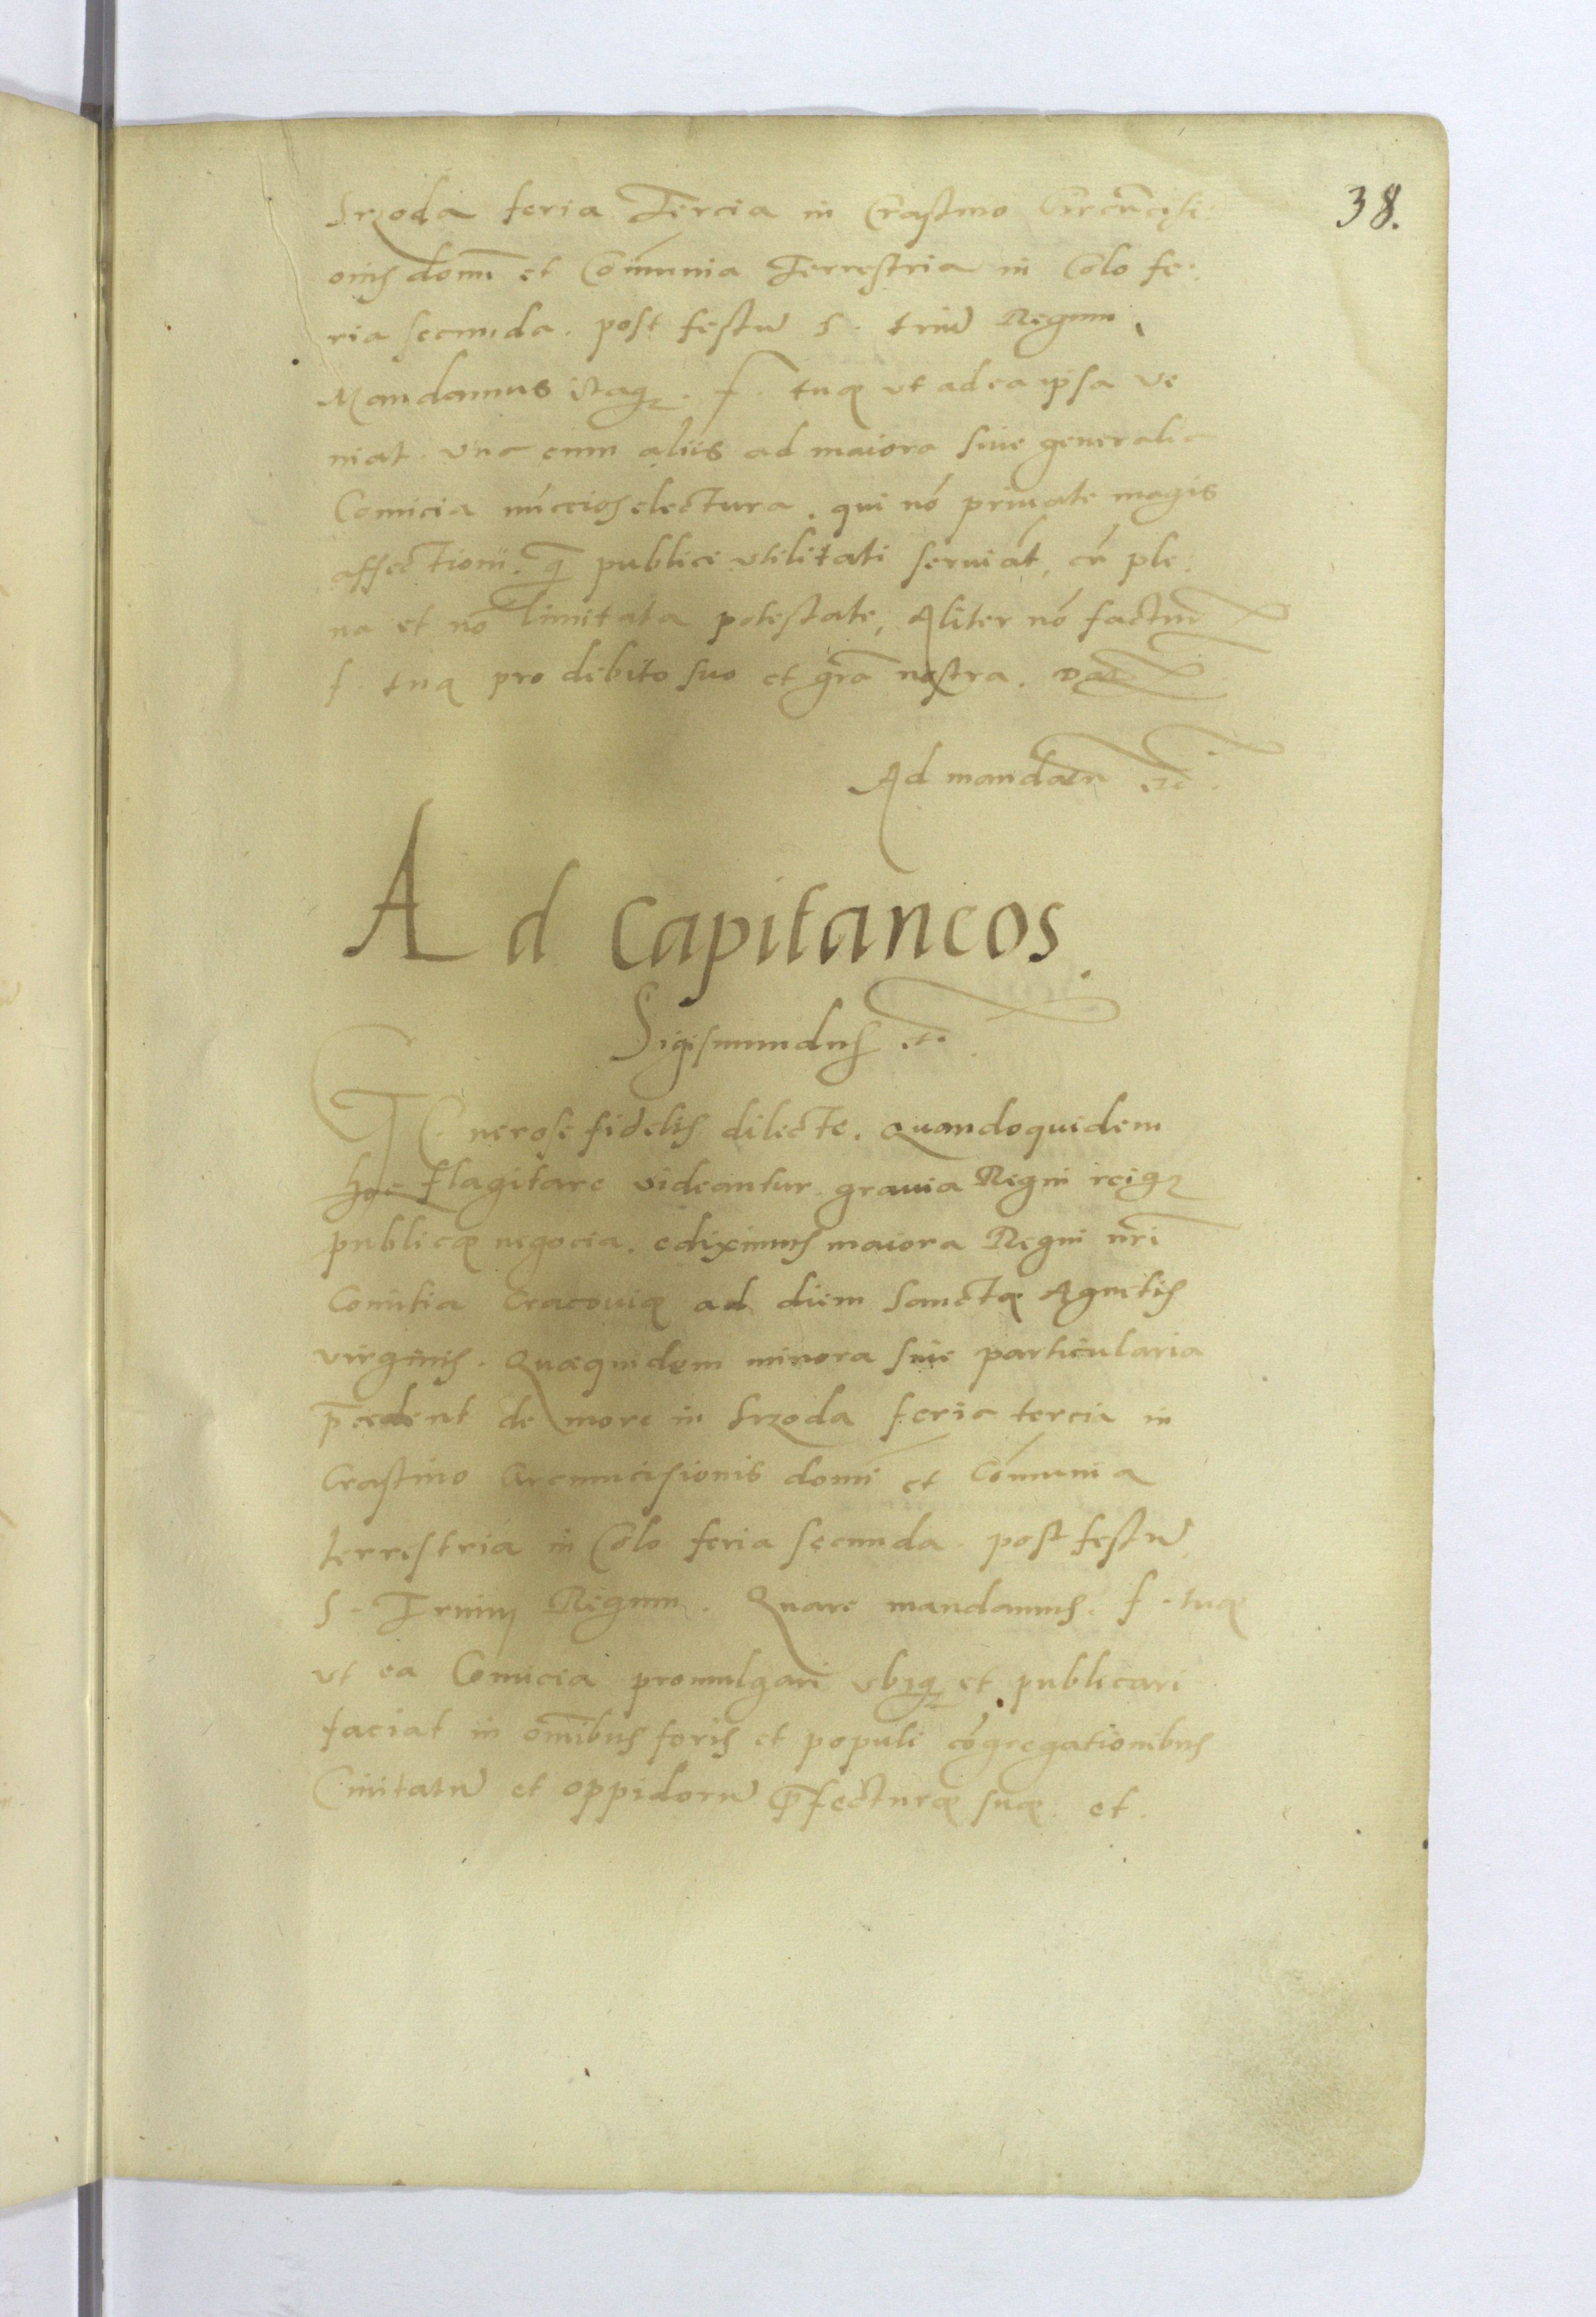 38.
Srzoda feria Tercia in Crastino Circũcisi-
onis domĩ et Cõmunia Terrestria in Colo fe-
ria secunda. post festũ S. triũ Regum.
Mandamus itaq₃. f. tuę vt ad ea ipsa ve
niat. vna cum aliis ad maiora siue generalia
Comicia nũccios electura. qui nõ priuate magis
affectioni. q̃ publice vtilitati seruiãt, cũ ple-
na et nõ limitata potestate, Aliter nõ factur
f. tuą pro debito suo et grã nostra. Dat
Ad mandatũ etc.
Ad Capitaneos.
Sigismundus etc.
Generose fidelis dilecte. Quandoquidem
hoc flagitare videantur grauia Regni reiq₃
publicę negocia. ediximus maiora Regni nrĩ
Comitia Cracouię ad diem Sanctę Agnetis
virginis. Quæquidem minora siue particularia
p̃cedent de more in Srzoda feria tercia in
Crastino Circumcisionis domĩ et Cõmunia
terrestria in Colo feria secunda. post festũ
S. Trium Regum. Quare mandamus. f. tuę
vt ea Comicia promulgari vbiq₃ et publicari
faciat in om̃ibus foris et populi cõgregationibus
Ciuitatũ et oppidorũ p̃fecturę suę. et.